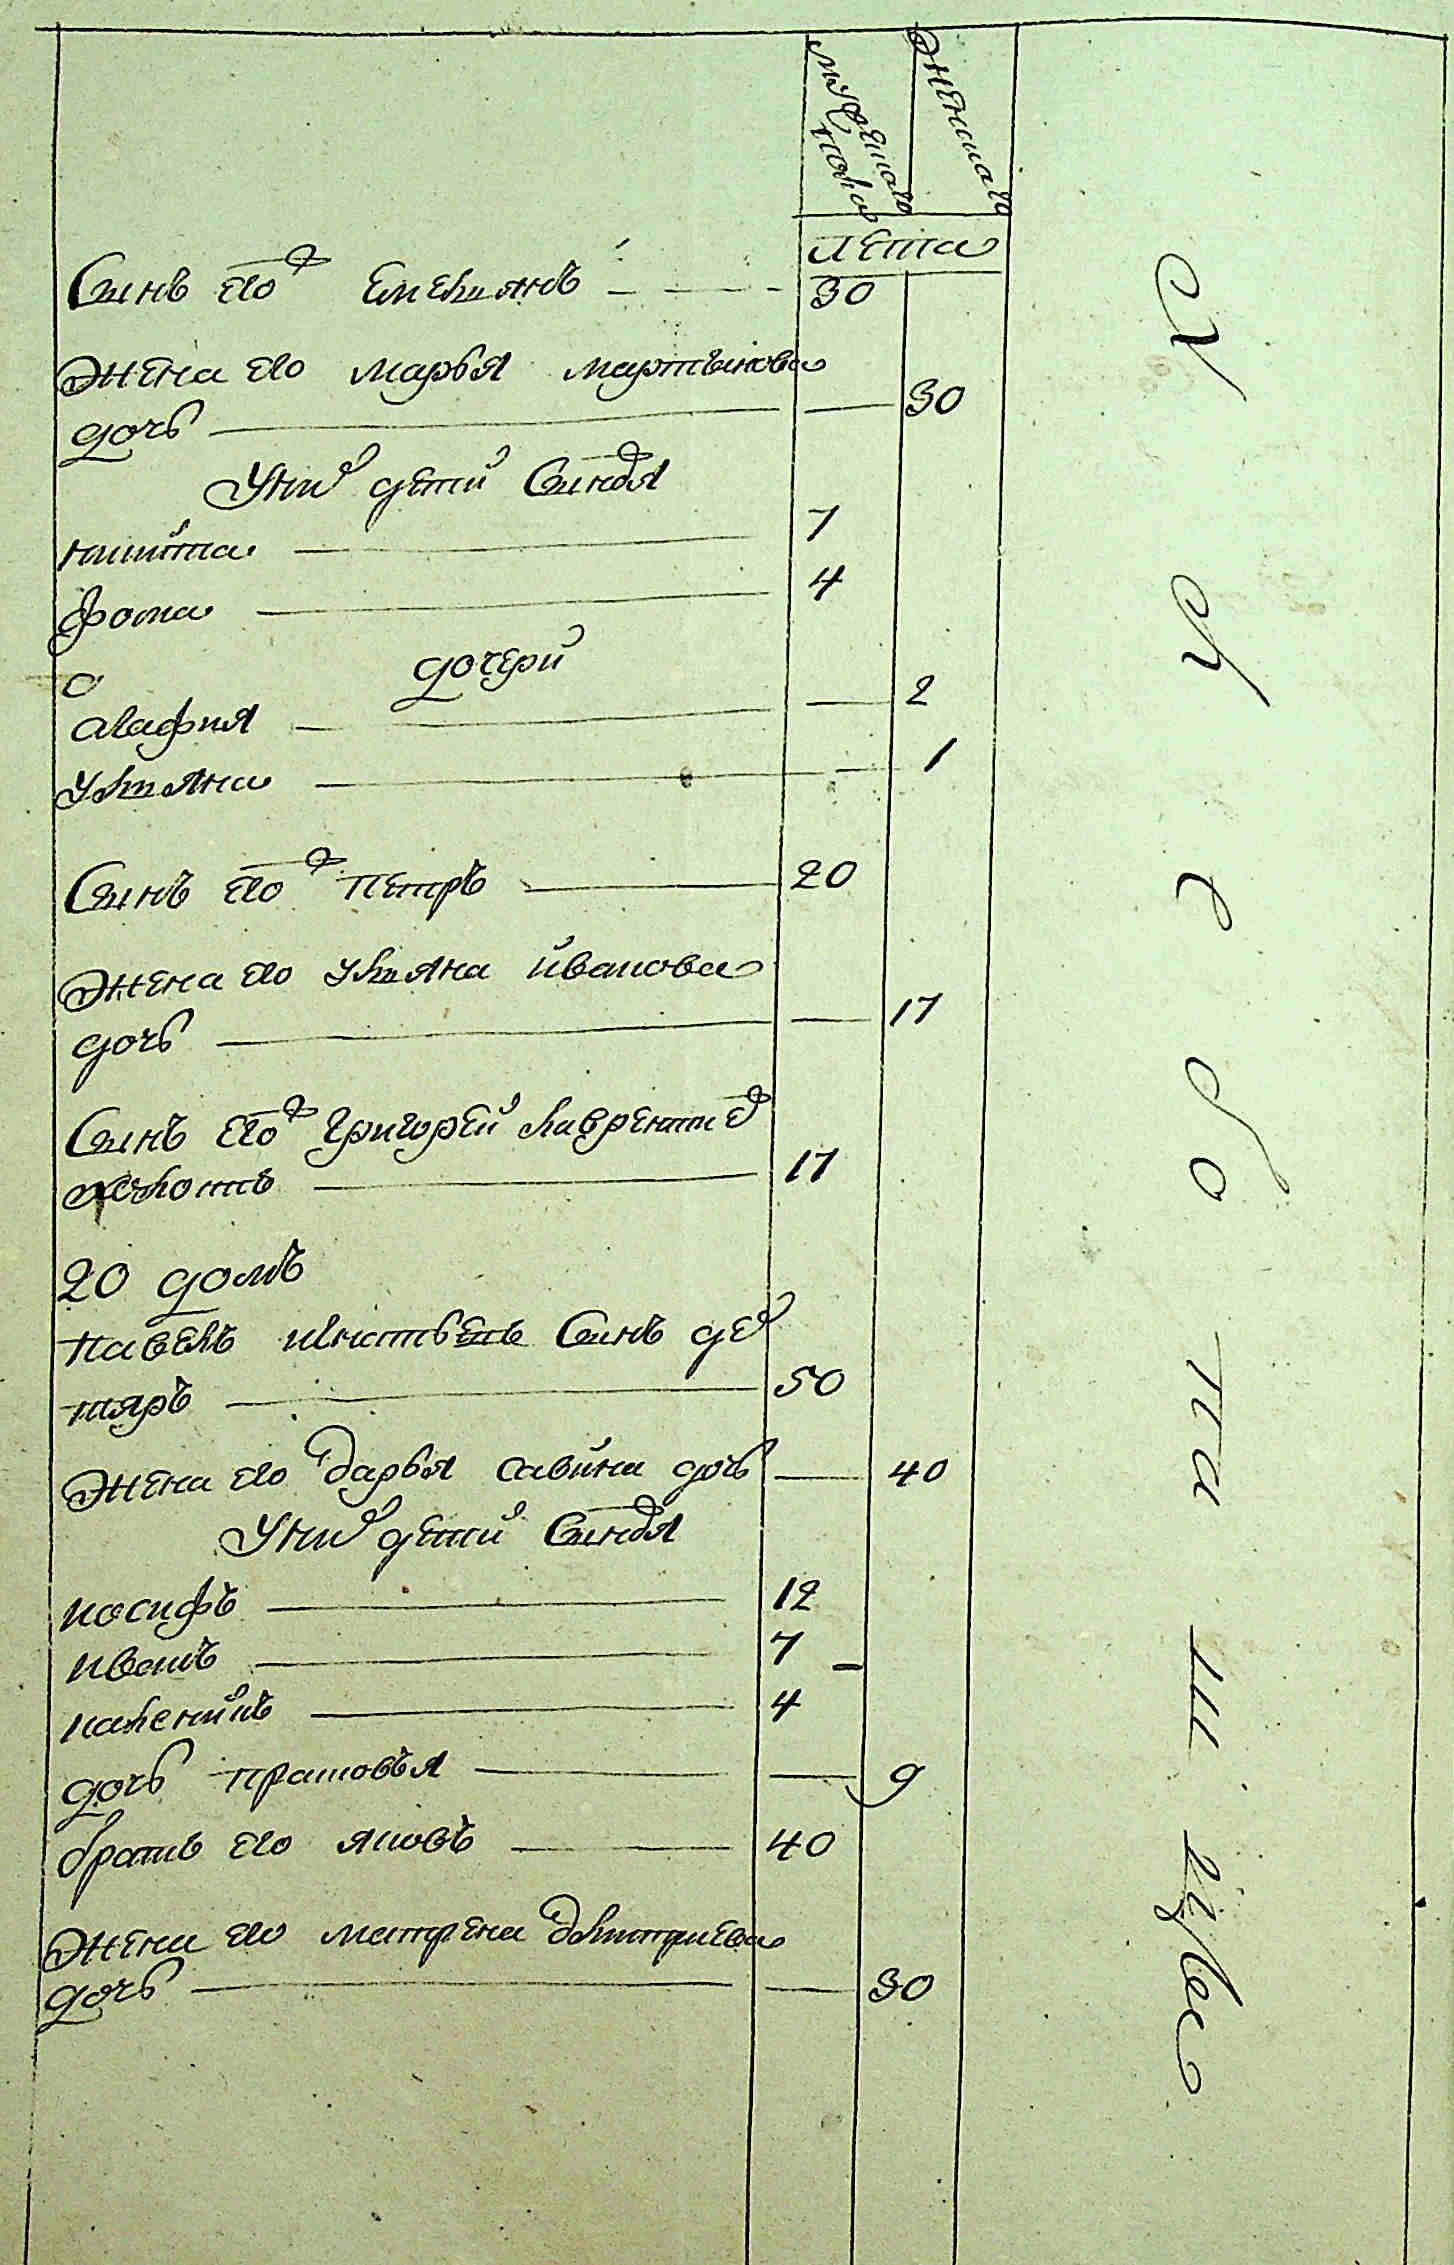 мужескаго
пола
женскаго
лета
Сынъ его Емельянъ 30
Жена его марья мартынова
дочь 30
У них дети Сыновя
никита 7
фома 4
дочери
агафия 2
ульяна 1
Сынъ его петръ 20
Жена его ульяна иванова
дочь 17
Сынъ его григорей лаврентие
холостъ 17
20 домъ
павелъ игнатьевъ Сынъ де
тяръ 50
Жена его дарья савина дочь 40
У них дети Сыновя
иосифъ 12
иванъ 7
каленикъ 4
дочь прасковья 9
братъ его яковъ 40
Жена его матрена дмитриева
дочь 30